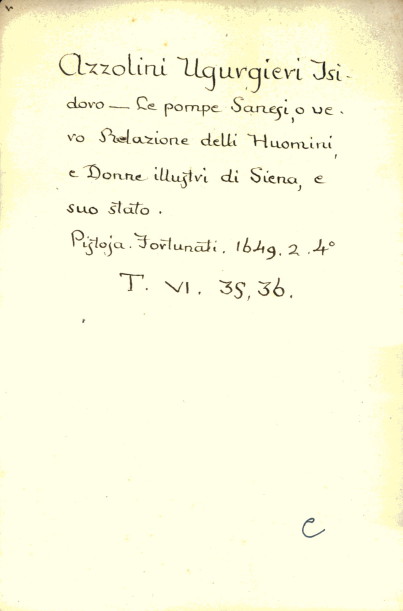 Azzolini Ugurgieri Isi-
doro — Le pompe Sanesi, o ve-
ro Relazione delli Huomini,
e Donne illustri di Siena, e
suo stato.
Pistoja. Fortunati. 1649. 2. 4°
T. VI. 35, 36.
C